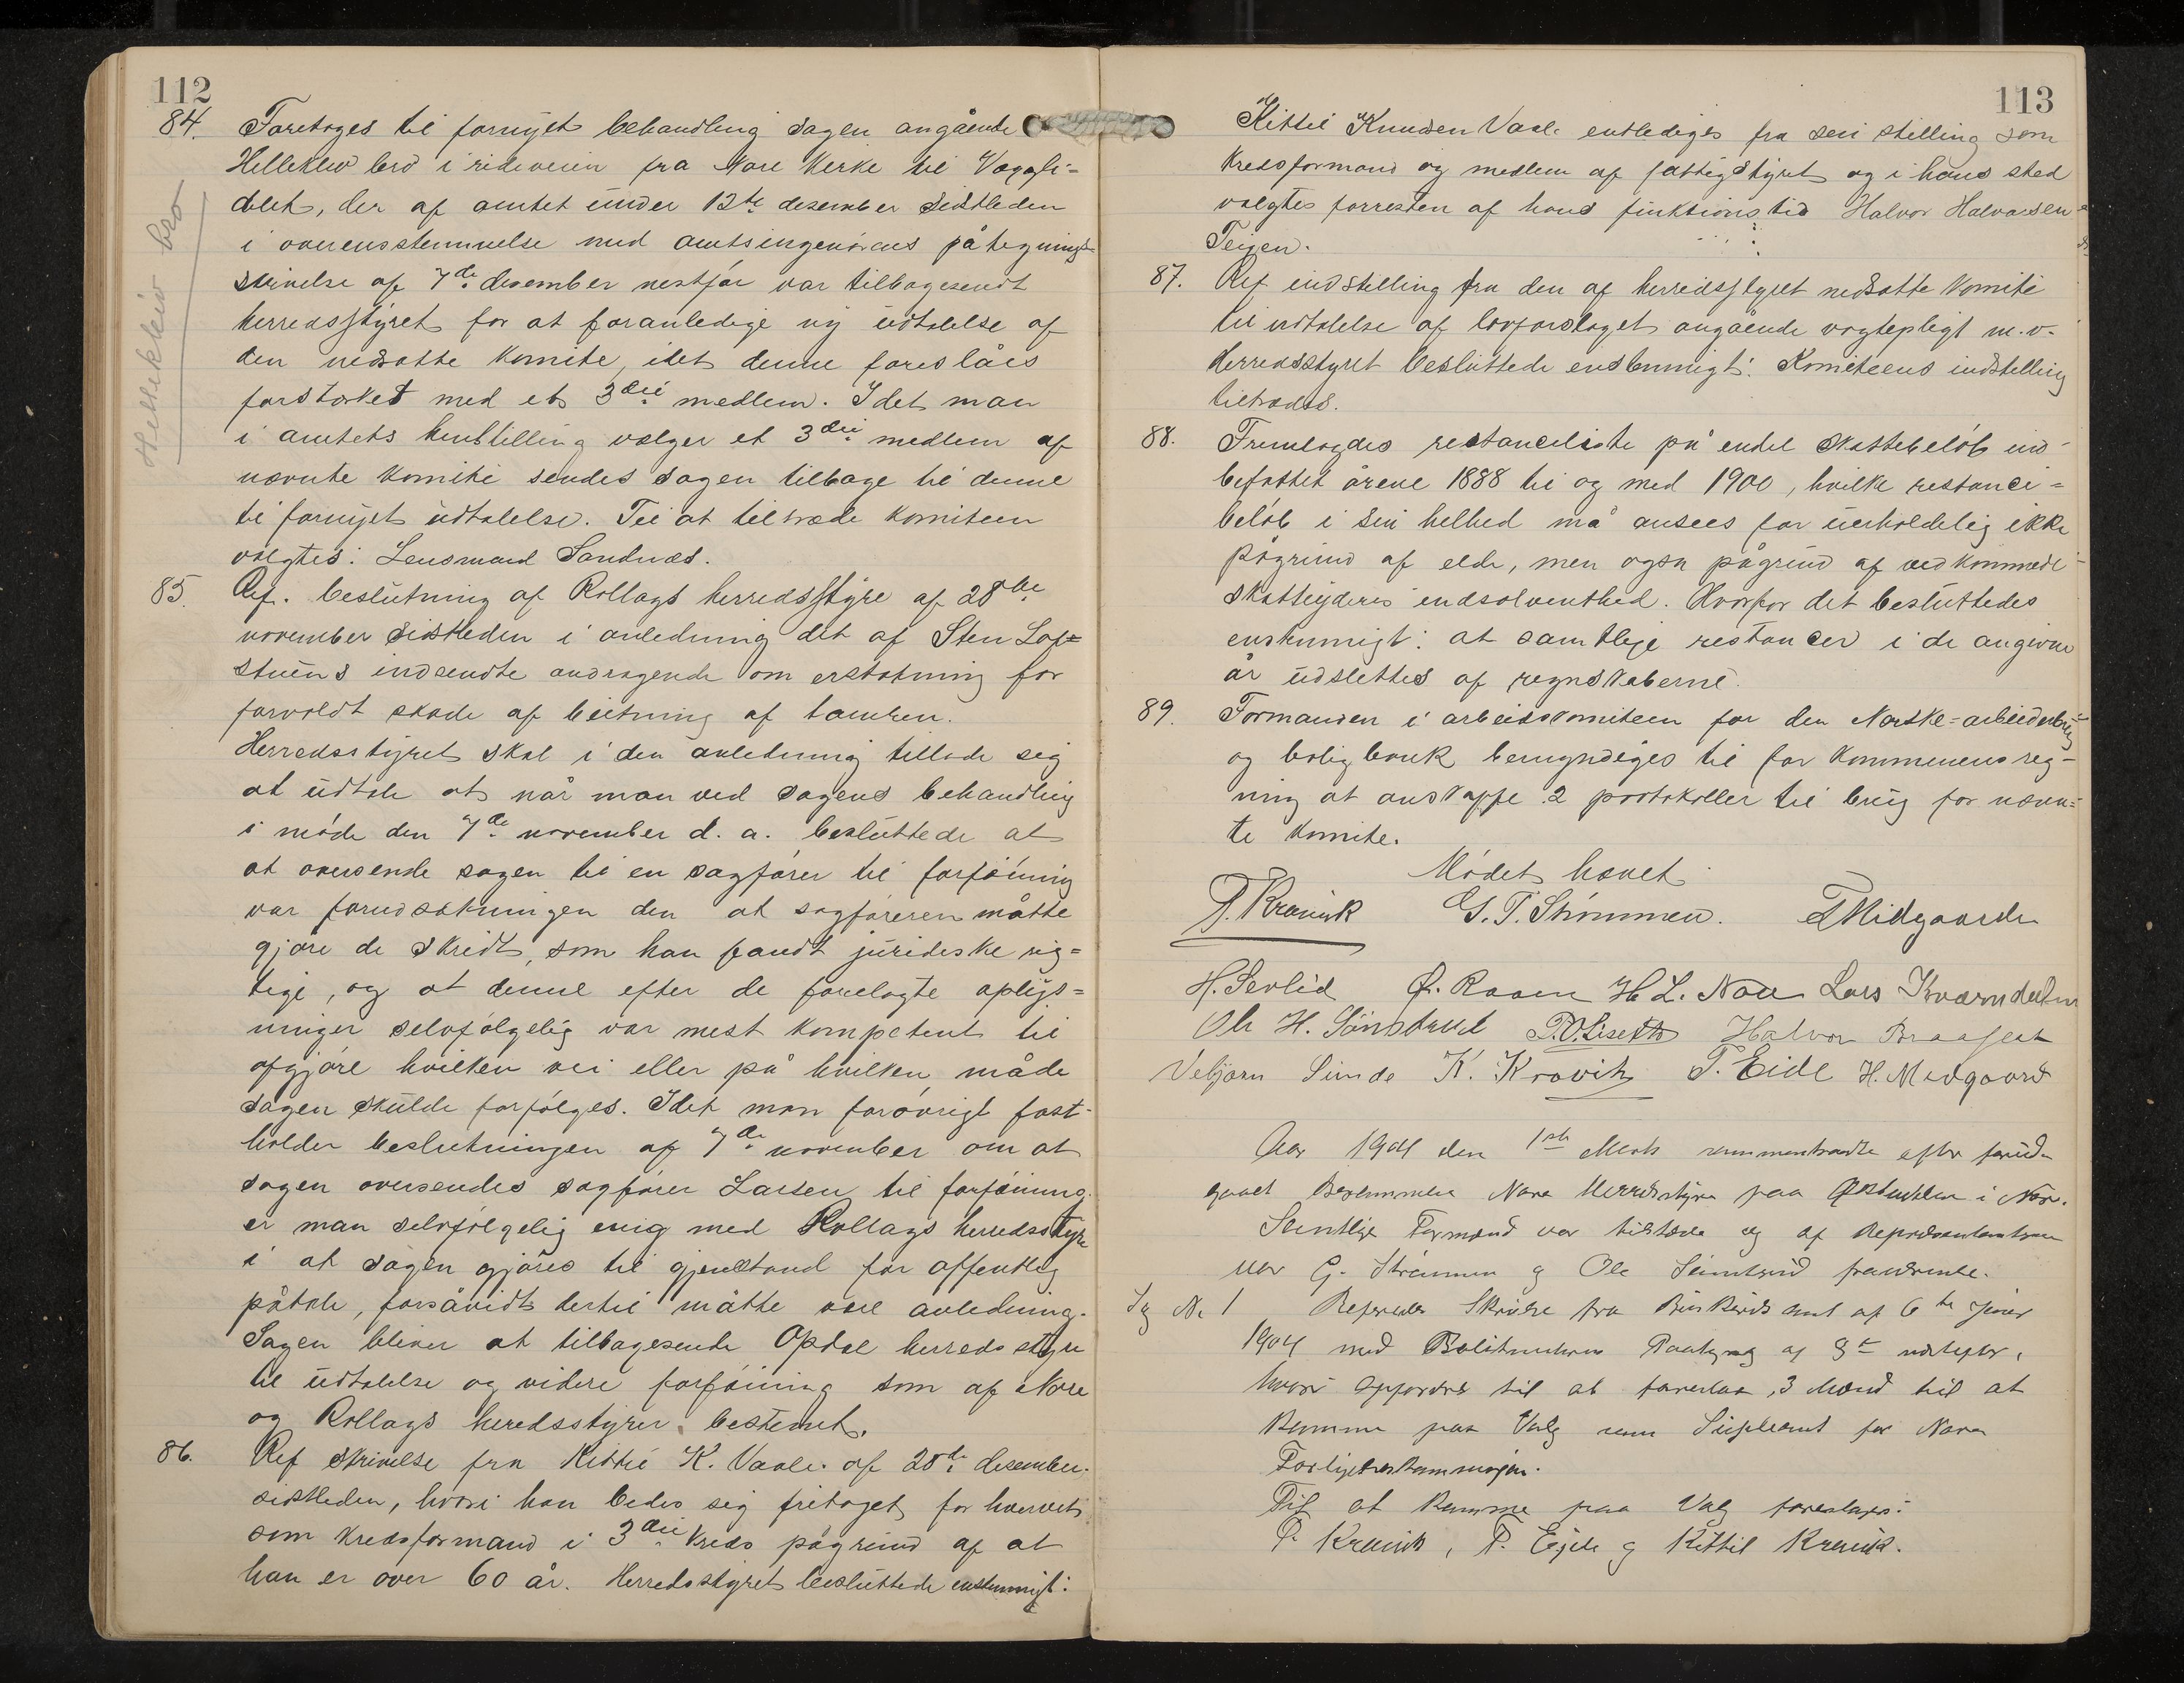 112
84. Foretoges til fornyet behandling sagen angående
Helleklev bro i rideveien fra Nore kirke til Vaggli-
delet, der af amtet under 12te desember sidstleden
i overensstemmelse med amtsingeniørens påtegnings-
skrivelse af 7de desember nestfør var tilbagesendt
herredsstyret for at foranledige ny udtalelse af
den nedsatte komite, idet denne foreslåes
forstærket med et 3die medlem. Idet man
i amtets henstilling vælger et 3die medlem af
nævnte komite sendes sagen tilbage til denne
til fornyet udtalelse. Til at tiltræde komiteen
valgtes: Lensmand Sandnæs.
Helleklev bro
85. Ref. beslutning af Rollags herredsstyre af 28de
november sidstleden i anledning det af Sten Lof-
stuens indsendte andragende om erstatning for
forvoldt skade af beitning af tamren.
Herredsstyret skal i den anledning tillade sig
at udtale at når man ved sagens behandling
i møde den 7de november d. a. besluttede at
at oversende sagen til en sagfører til forføining
var forudsætningen den at sagføreren måtte
gjøre de skridt, som han fandt jurideske rig-
tige, og at denne efter de forelagte oplys-
ninger selvfølgelig var mest kompetent til
afgjøre hvilken vei eller på hvilken måde
sagen skulde forfølges. Idet man forøvrigt fast-
holder beslutningen af 7de november om at
sagen oversendes sagfører Larsen til forføining
er man selvfølgelig enig med Rollags herredsstyre
i at sagen gjøres til gjenstand for offentlig
påtale, forsåvidt dertil måtte være anledning.
Sagen bliver at tilbagesende Opdal herredsstyre
til udtalelse og videre forføining som af Nore
og Rollags heredsstyrer bestemt.
86. Ref skrivelse fra Kittil K. Vaale af 28de desember
sidstleden, hvori han bedes sig fritaget for hvervet
som kredsformand i 3die kreds pågrund af at
han er over 60 år. Herredsstyret besluttede enstemmigt:
113
Kittil Knudsen Vaale entlediges fra sin stilling som
kredsformand og medlem af fattigstyret og i hans sted
valgtes forresten af hans funktionstid Halvor Halvorsen
Teigen.
87. Ref indstilling fra den af herredsstyret nedsatte komite
til udtalelse af lovforslaget angående vogtepligt m.v.
Herredsstyret besluttede enstemmigt: Komiteens indstilling
tiltrædes.
88. Fremlagdes restanceliste på endel skattebeløb ind-
befattet årene 1888 til og med 1900, hvilke restance-
beløb i sin helhed må ansees for uerholdelig ikke
pågrund af elde, men også pågrund af vedkommende
skatteyderes indsolventhed. Hvorfor det besluttedes
enstemmigt: at samtlige restancer i de angivne
år udslettes af regnskaberne.
89. Formanden i arbeidskomiteen for den Norske-arbeiderbrug
og boligbank bemyndiges til for kommunens reg-
ning at anskaffe 2 protokoller til brug for nævn-
te komite.
Mødet hævet
P. Kravik G. T. Strømmen. T Midgaarde
H. Sevlid Ø. Raaen H L. Nore Lars Kværndalen
Ole H. Sønstrud T.O. Liseth Halvor Braaset
Vebjørn Simde K. Kravik T. Eide H. Medgaard
Aar 1904 den 1ste Marts sammentraadte efter forud-
gaaet Berammelse Nore Herredsstyre paa i Nore.
Samtlige Formænd var tilstæde og af Repræsentanterne
var G. Strømmen og Ole Sønstrud fraværende.
Sag No 1 Refereredes Skrivelse fra Buskeruds Amt af 6te Januar
1904 med Paategning af 8de næstefter,
hvori opfordres til at foreslaa 3 Mænd til at
komme paa Valg som Supleant for Nore
Forligelseskommission.
Til at komme paa Valg foreslages:
P. Kravik, T. Eide og Kittil Kravik.